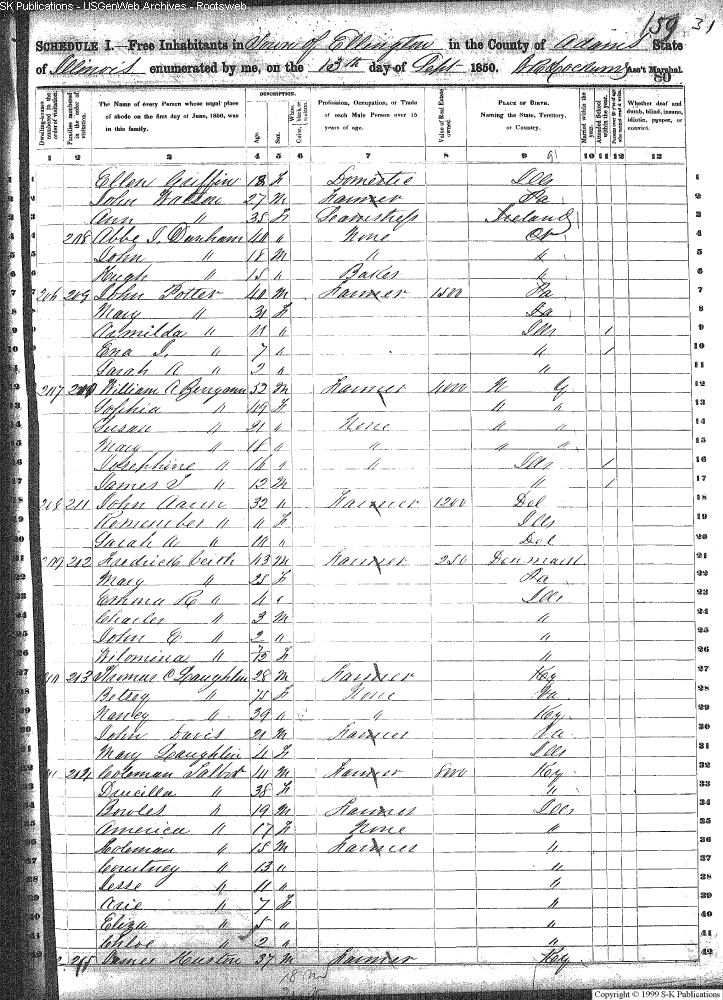 SK Publications - USGenWeb Archives - Rootsweb
159 31
SCHEDULE I.—Free Inhabitants in Town of Ellington in the County of Adams State
of Illinois enumerated by me, on the 13th day of Sept 1850. Ass't Marshal.
80
Dwelling-houses numbered in the order of visitation.
Families numbered in the order of visitation.
The Name of every Person whose usual place of abode on the first day of June, 1850, was in this family.
DESCRIPTION.
Age.
Sex.
Color, White, black, or mulatto.
Profession, Occupation, or Trade of each Male Person over 15 years of age.
Value of Real Estate owned.
PLACE OF BIRTH. Naming the State, Territory, or Country.
Married within the year.
Attended School within the year.
Persons over 20 y'rs of age who cannot read & write.
Whether deaf and dumb, blind, insane, idiotic, pauper, or convict.
1 2 3 4 5 6 7 8 9 10 11 12 13
1 Ellen Griffin 18 F Domestic Ills 1
2 John Walton 27 M Farmer Pa 2
3 Ann " 35 F Seamstress Ireland 3
4 208 Abbe J. Dunham 40 " None 4
5 John " 18 M " " 5
6 Hugh " 15 " " 6
7 206 209 John Potter 40 M Farmer 1500 Pa 7
8 Mary " 31 F Pa 8
9 Armilda " 11 " Ills 1 9
10 7 " " 1 10
11 Sarah A " 2 " " 11
12 207 210 William A Berryann 52 M Farmer 4000 N Y 12
13 Sophia " 49 F " " 13
14 Susan " 21 " None " " 14
15 Mary " 18 " " " " 15
16 Josephine " 16 " " Ills 1 16
17 James " 12 M " 1 17
18 208 211 John 32 " Farmer 1200 Del 18
19 Remember " " F Ills 19
20 Sarah A " 10 " Del 20
21 209 212 Fredrick 43 M Farmer 250 Denmark 21
22 Mary " 25 F Pa 22
23 Emma R " 4 " Ills 23
24 Charles " 3 M " 24
25 John E " 2 " " 25
26 Wilomina " F " 26
27 210 213 Thomas C Laughlin 28 M Farmer Ky 27
28 Betsey " 71 F None Va 28
29 Nancy " 39 " " Ky 29
30 John Davis 21 M Farmer 30
31 Mary Laughlin 4 F Ills 31
32 211 214 Coleman Talbot 41 M Farmer 8000 Ky 32
33 Drucilla " 38 F " 33
34 Bowles " 19 M Farmer Ills 34
35 America " 17 F None " 35
36 Coleman " 15 M Farmer " 36
37 Courtney " 13 " " 37
38 Jesse " 11 " " 38
39 Arie " 7 F " 39
40 Eliza " 5 " " 40
41 Chloe " 2 " " 41
42 215 James Huston 37 M Farmer Ky 42
18 m
Copyright © 1999 S-K Publications